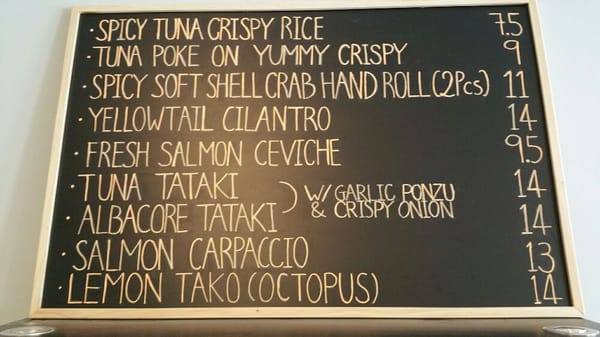 · SPICY TUNA CRISPY RICE 7.5
· TUNA POKE ON YUMMY CRISPY 9
· SPICY SOFT SHELL CRAB HAND ROLL (2Pcs) 11
· YELLOWTAIL CILANTRO 14
· FRESH SALMON CEVICHE 9.5
· TUNA TATAKI ) W/ GARLIC PONZU 14
& CRISPY ONION
· ALBACORE TATAKI 14
· SALMON CARPACCIO 13
· LEMON TAKO (OCTOPUS) 14